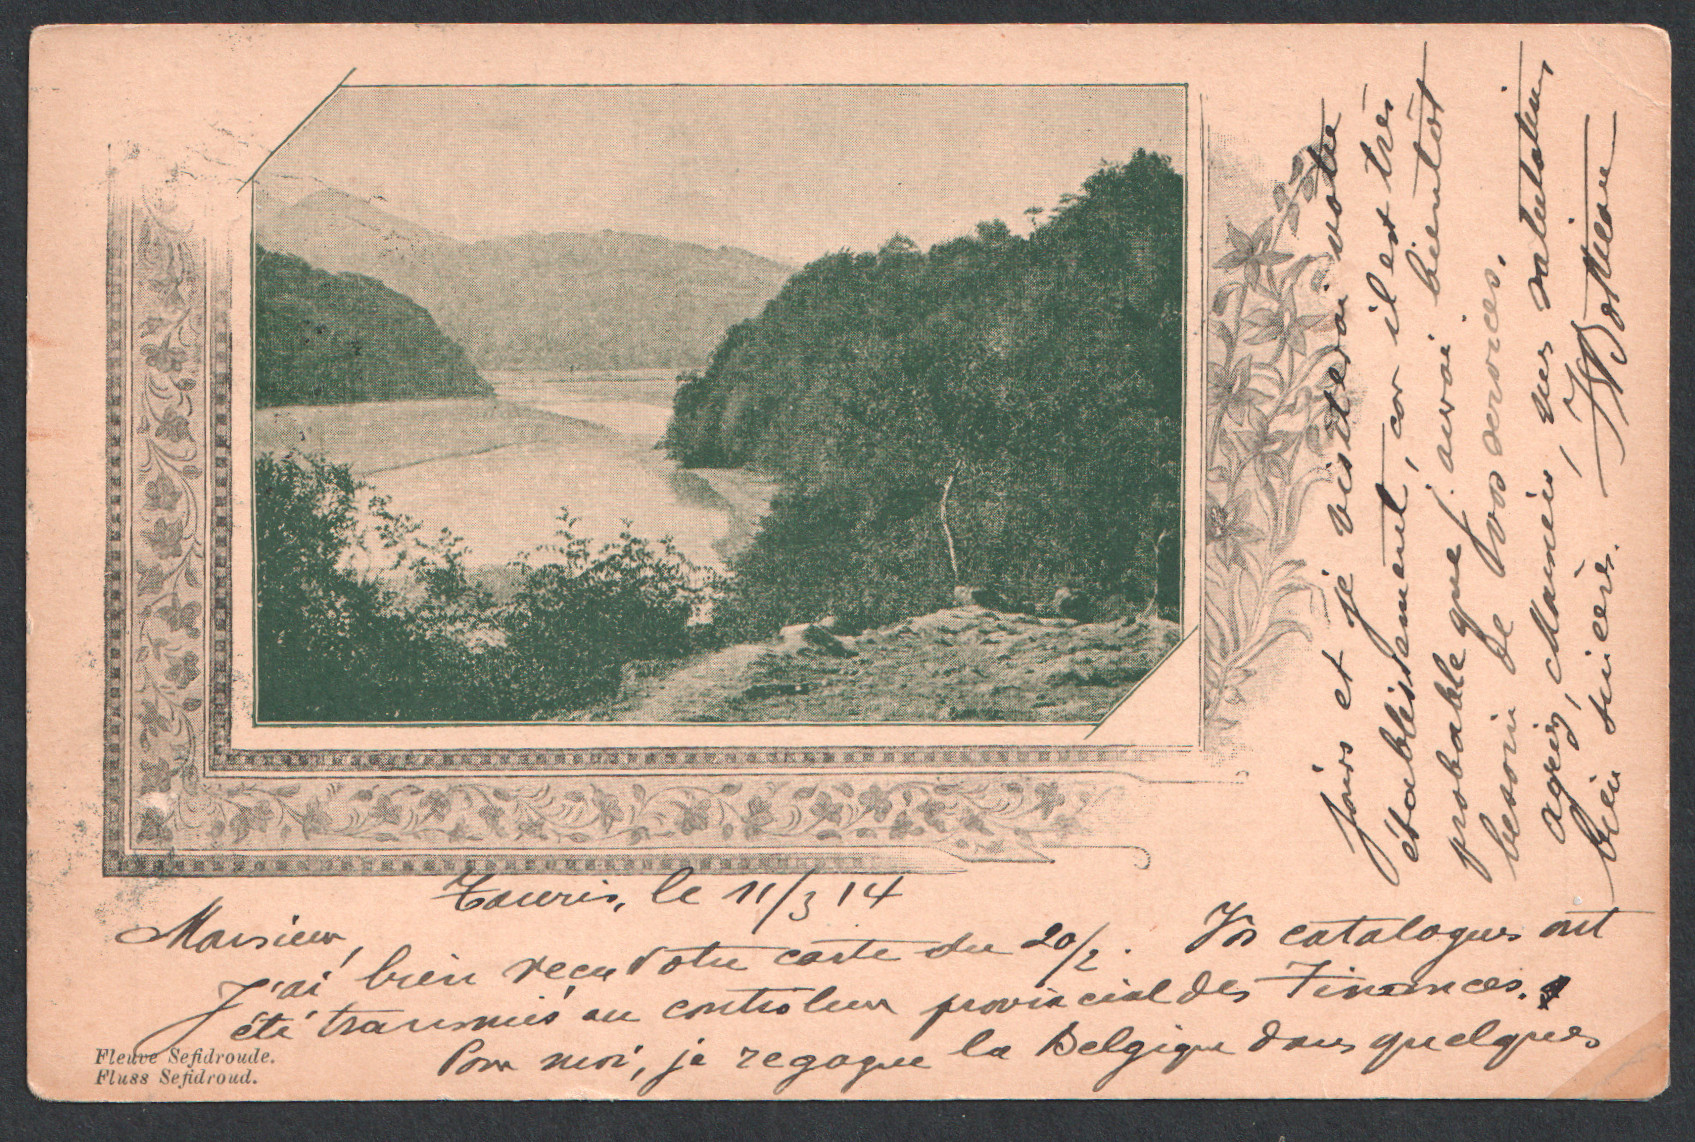 Tauris, le 11/3 14
Monsieur,
J'ai bien reçu votre carte du 20/2. Vos catalogues ont
été transmis au contrôleur provincial des Finances.
Pour moi, je regagne la Belgique dans quelques
jours et je visiterai votre
établissement, car il est très
probable que j'aurai bientôt
besoin de vos services.
agréez, Monsieur, mes salutations
bien sincères.
Fleuve Sefidroude.
Fluss Sefidroud.